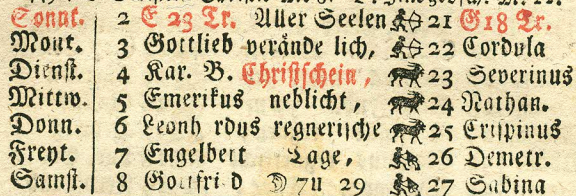 Sonnt. 2 E 23 Tr. Aller Seelen 21 G 18 Tr.
Mont. 3 Gottlieb verände lich, 22 Cordula
Dienst. 4 Kar. B. Christschein, 23 Severinus
Mittw. 5 Emerikus neblicht, 24 Nathan.
Donn. 6 Leonh rdus regnerische 25 Crispinus
Freyt. 7 Engelbert Tage, 26 Demetr.
Samst. 8 Gottfried 7 U 29 27 Sabina